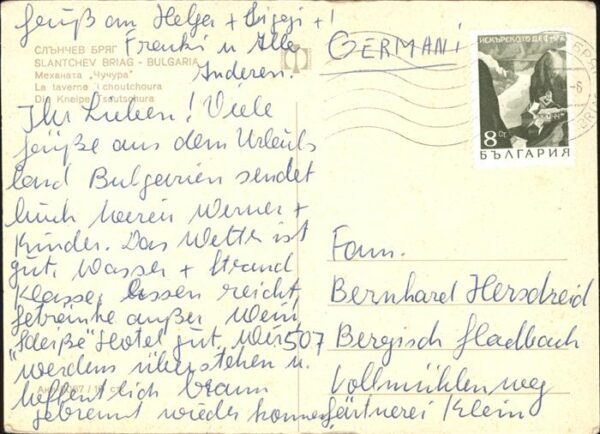 Gruß an Helga + Gigi +
Frenki u Alle
Anderen.
СЛЪНЧЕВ БРЯГ
SLANTCHEV BRIAG - BULGARIA
Механата „Чучура"
La taverne Tchoutchoura
Die Kneipe Tschutschura
Ihr Lieben! Viele
Grüße aus dem Urlaubs
land Bulgarien sendet
Euch Werner +
Kinder. Das Wetter ist
gut, Wasser + Strand
Klasse, Essen reicht,
Getränke außer Wein,
"Scheiße" Hotel gut, Wir
werden überstehen u.
hoffentlich braun
gebrannt wieder kommen
GERMANI
ИСКЪРСКОТО ДЕФИЛЕ
8 СТ
БЪЛГАРИЯ
Fam.
Bernhard Hersdreid
507 Bergisch Gladbach
Vollmühlenweg
Gärtnerei Klein